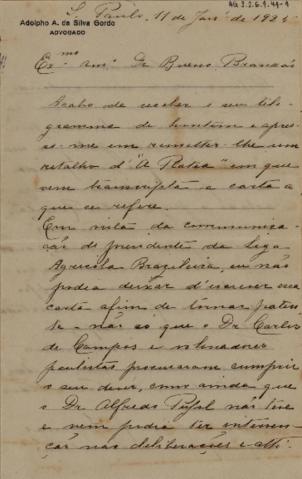 AG 3.2.6.9.49-1
S. Paulo, 11 de Janº de 1925
Adolpho A. da Silva Gordo
ADVOGADO
Exmo amº Dr Bueno Brandão
Acabo de receber o seu tele-
gramma de hontem e apres-
so-me em remetter-lhe um
retalho d'"A Platea" em que
vem transcripta a carta a
que se refere.
Em vista da communica-
ção do presidente da Liga
Agricola Brazileira, eu não
podia deixar d'escrever essa
carta afim de tornar paten-
te - não só que o Dr Carlos
de Campos e os senadores
paulistas procuraram cumprir
o seu dever, como ainda que
o Dr. Alfredo Pujol não teve
e nem podia ter interven-
ção nas deliberações e atti-